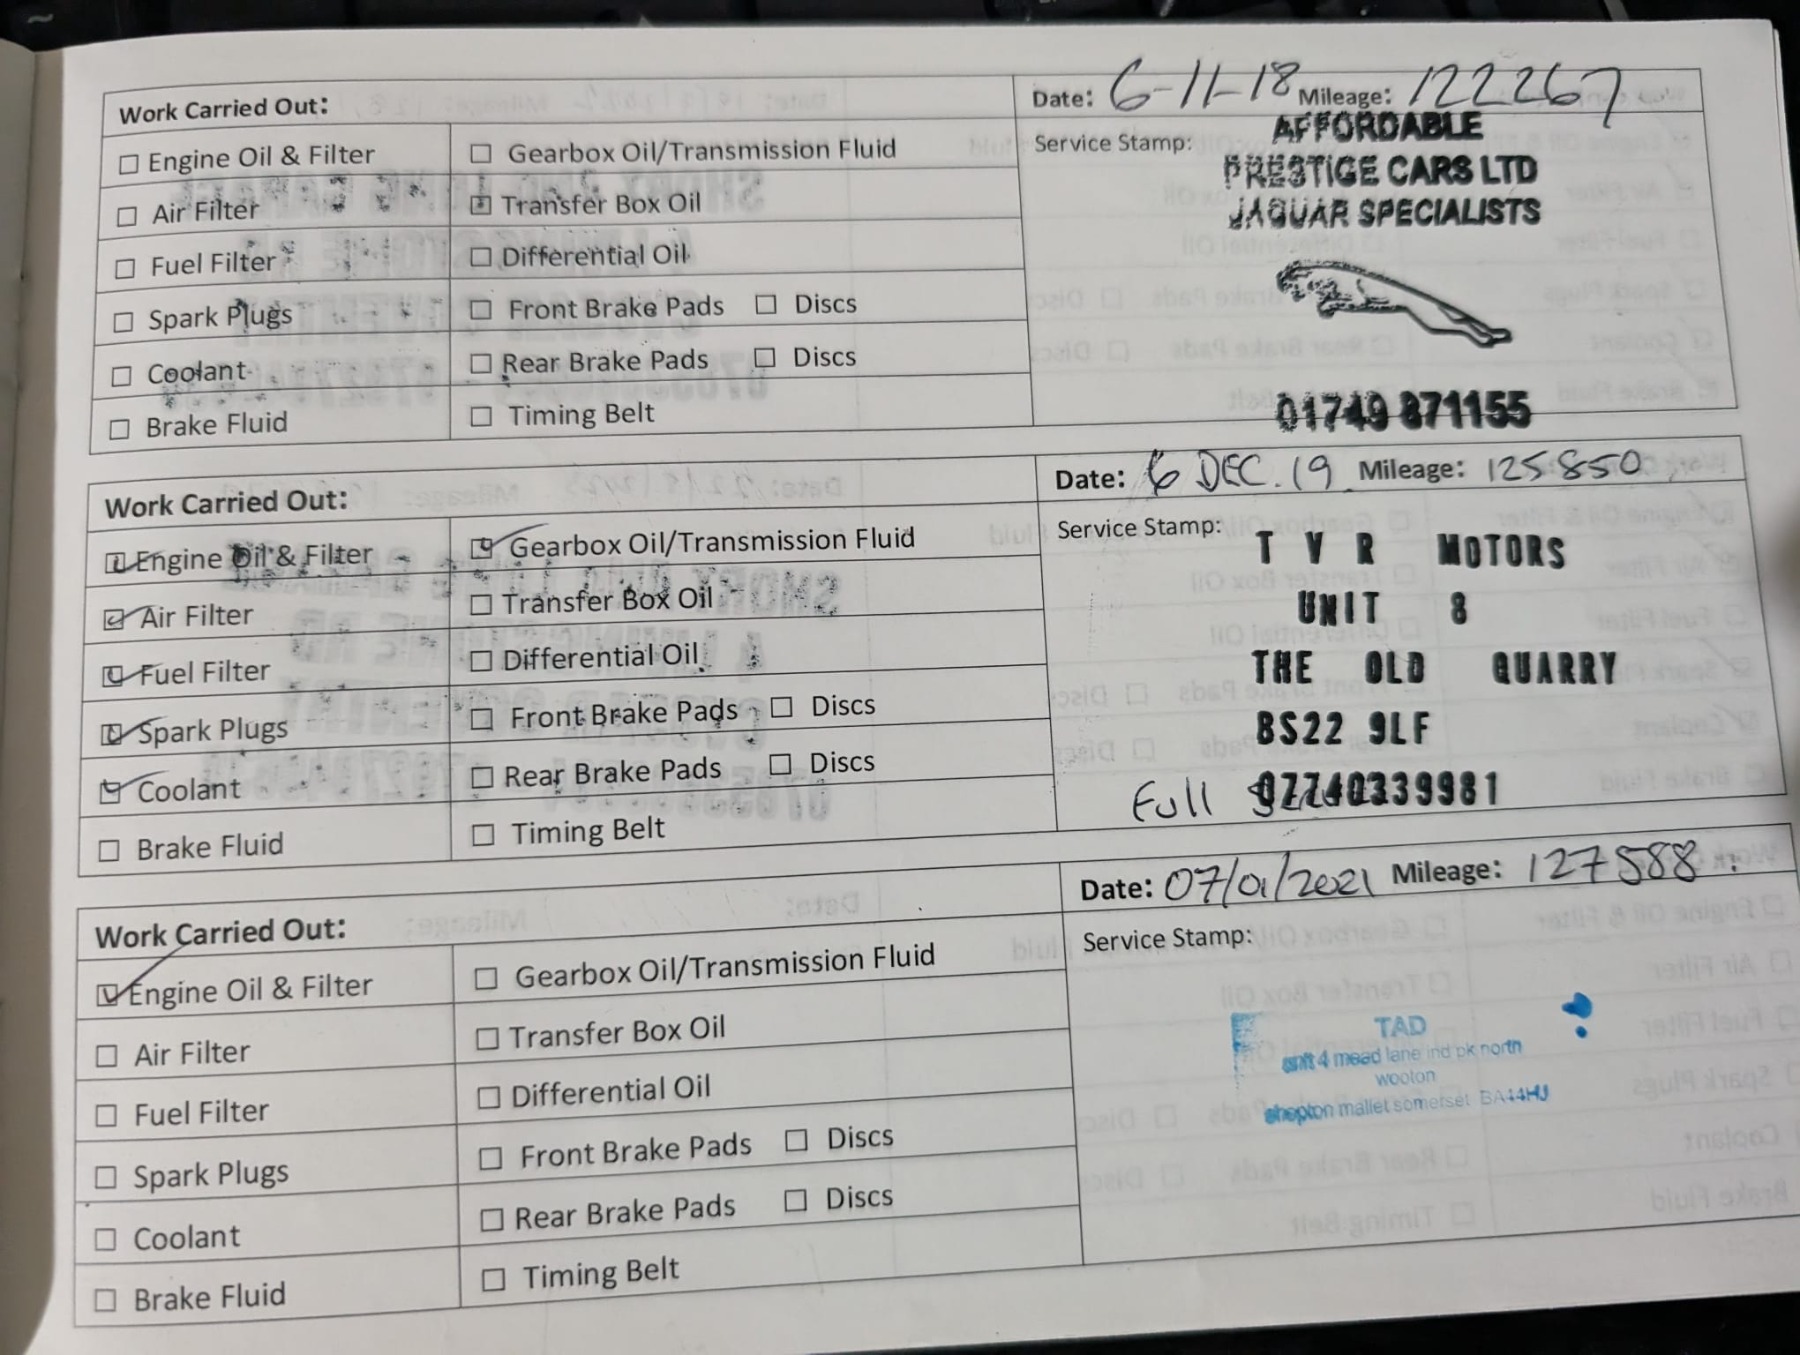 Work Carried Out:
Date: 6-11-18 Mileage: 122267
☐ Engine Oil & Filter ☐ Gearbox Oil/Transmission Fluid
☐ Air Filter ☐ Transfer Box Oil
☐ Fuel Filter ☐ Differential Oil
☐ Spark Plugs ☐ Front Brake Pads ☐ Discs
☐ Coolant ☐ Rear Brake Pads ☐ Discs
☐ Brake Fluid ☐ Timing Belt
Service Stamp:
AFFORDABLE
PRESTIGE CARS LTD
JAGUAR SPECIALISTS
01749 871155
Work Carried Out:
Date: 6 DEC. 19 Mileage: 125850
☑ Engine Oil & Filter ☑ Gearbox Oil/Transmission Fluid
☑ Air Filter ☐ Transfer Box Oil
☑ Fuel Filter ☐ Differential Oil
☑ Spark Plugs ☐ Front Brake Pads ☐ Discs
☑ Coolant ☐ Rear Brake Pads ☐ Discs
☐ Brake Fluid ☐ Timing Belt
Service Stamp:
T V R MOTORS
UNIT 8
THE OLD QUARRY
BS22 9LF
Full 07740339981
Work Carried Out:
Date: 07/01/2021 Mileage: 127588
☑ Engine Oil & Filter ☐ Gearbox Oil/Transmission Fluid
☐ Air Filter ☐ Transfer Box Oil
☐ Fuel Filter ☐ Differential Oil
☐ Spark Plugs ☐ Front Brake Pads ☐ Discs
☐ Coolant ☐ Rear Brake Pads ☐ Discs
☐ Brake Fluid ☐ Timing Belt
Service Stamp:
TAD
unit 4 mead lane ind pk north
wooton
shepton mallet somerset BA44HJ